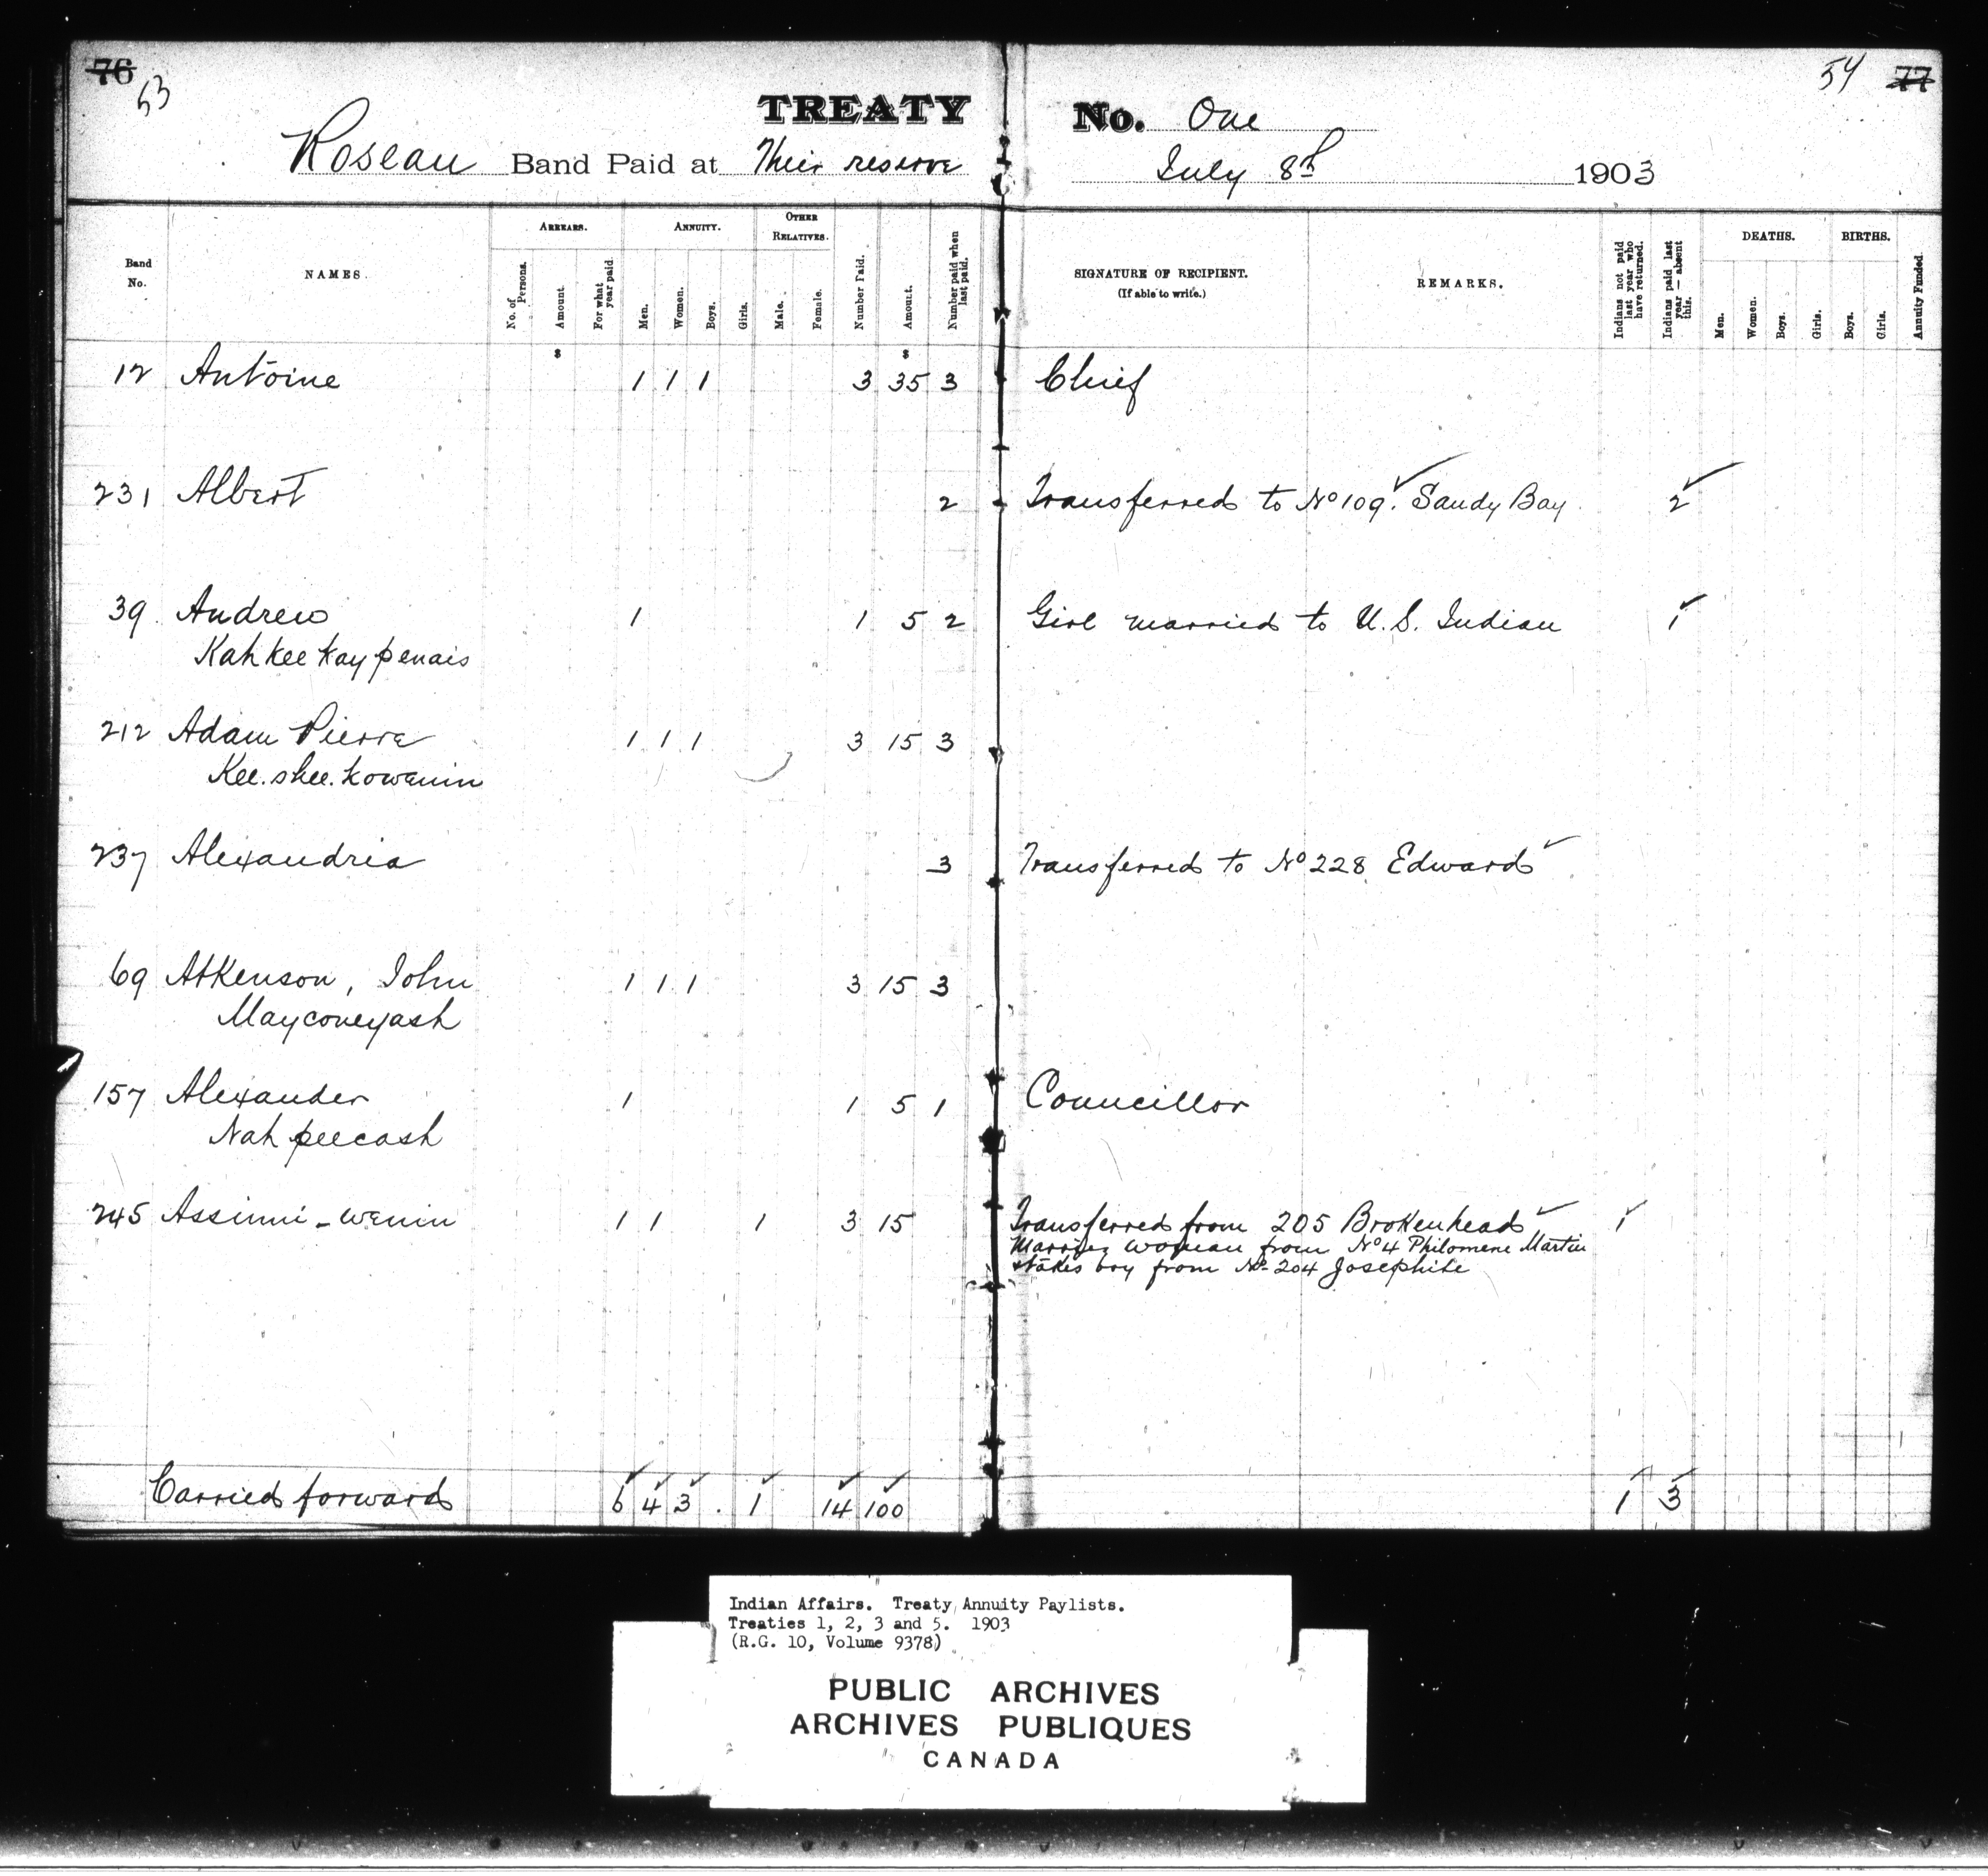 76 53
54 77
TREATY No. One
Roseau Band Paid at Their reserve July 8th 1903
Band No.
NAMES.
ARREARS.
No. of Persons.
Amount.
For what year paid
ANNUITY.
Men.
Women.
Boys.
Girls.
OTHER RELATIVES.
Male.
Female.
Number Paid.
Amount.
Number paid when last paid.
SIGNATURE OF RECIPIENT.
(If able to write.)
REMARKS.
Indians not paid last year who have returned.
Indians paid last year — absent this.
DEATHS.
Men.
Women.
Boys.
Girls.
BIRTHS.
Boys.
Girls.
Annuity Funded.
$ $
12 Antoine 1 1 1 3 35 3 Chief
231 Albert 2 Transferred to No 109. Sandy Bay 2
39. Andrew 1 1 5 2 Girl married to U.S. Indian 1
Kah kee kay penais
212 Adam Pierre 1 1 1 3 15 3
Kee. shee. kowenin
237 Alexandria 3 Transferred to No 228 Edward
69 Atkenson, John 1 1 1 3 15 3
Mayconeyash
157 Alexander 1 1 5 1 Councillor
Nah peecash
245 Assinni-wenin 1 1 1 3 15 Transferred from 205 Brokenhead 1
Marries woman from No 4 Philomene Martin
& takes boy from No 204 Josephite
Carried forward 6 4 3 . 1 14 100 1 3
Indian Affairs. Treaty Annuity Paylists.
Treaties 1, 2, 3 and 5. 1903
(R.G. 10, Volume 9378)
PUBLIC ARCHIVES
ARCHIVES PUBLIQUES
CANADA